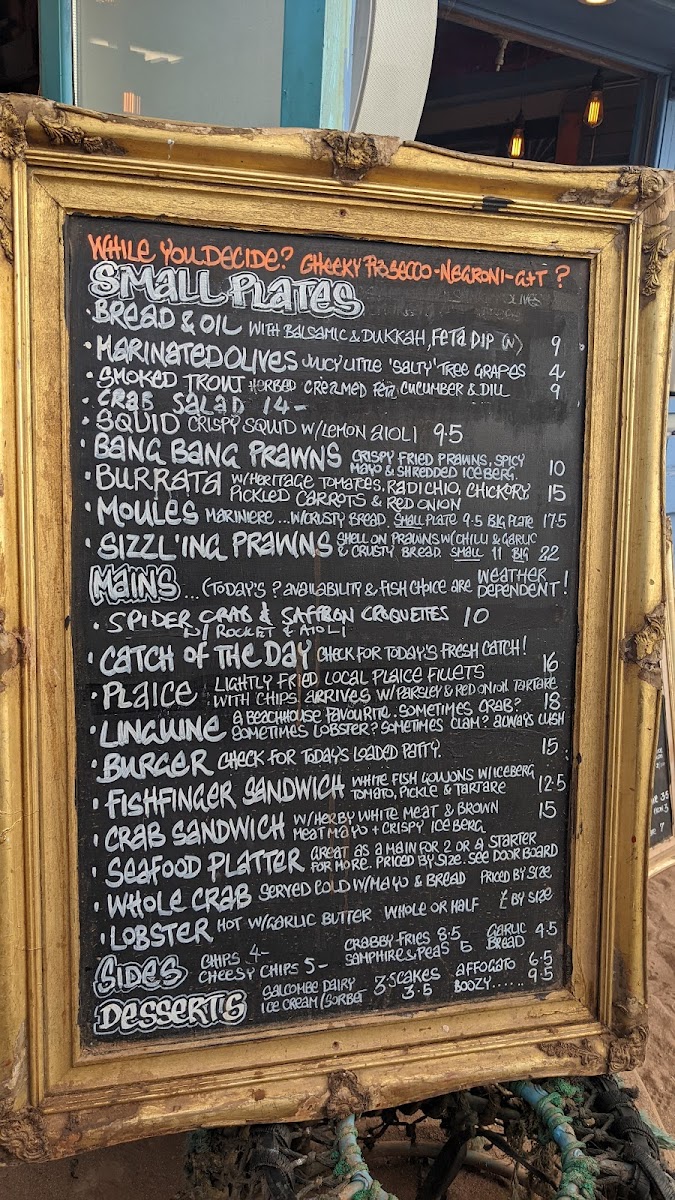 WHILE YOU DECIDE? CHEEKY PROSECCO - NEGRONI - G&T ?
SMALL PLATES
· BREAD & OIL WITH BALSAMIC & DUKKAH, FETA DIP (V) 9
· MARINATED OLIVES JUICY LITTLE 'SALTY' TREE GRAPES 4
· SMOKED TROUT HERBED CREAMED FETA, CUCUMBER & DILL 9
· CRAB SALAD 14 -
· SQUID CRISPY SQUID W/LEMON AIOLI 9.5
· BANG BANG PRAWNS CRISPY FRIED PRAWNS, SPICY
MAYO & SHREDDED ICEBERG. 10
· BURRATA W/HERITAGE TOMATOES, RADICHIO, CHICKORY,
PICKLED CARROTS & RED ONION 15
· MOULES MARINIERE ... W/CRUSTY BREAD. SMALL PLATE 9.5 BIG PLATE 17.5
· SIZZL'ING PRAWNS SHELL ON PRAWNS W/CHILLI & GARLIC
& CRUSTY BREAD. SMALL 11 BIG 22
MAINS ... (TODAY'S ? AVAILABILITY & FISH CHOICE ARE WEATHER
DEPENDENT!
· SPIDER CRAB & SAFFRON CROQUETTES 10
W/ ROCKET & AIOLI
· CATCH OF THE DAY CHECK FOR TODAY'S FRESH CATCH!
· PLAICE : LIGHTLY FRIED LOCAL PLAICE FILLETS 16
WITH CHIPS ARRIVES W/PARSLEY & RED ONION TARTARE
· LINGUINE A BEACHHOUSE FAVOURITE. SOMETIMES CRAB? 18
SOMETIMES LOBSTER? SOMETIMES CLAM? ALWAYS LUSH
· BURGER CHECK FOR TODAY'S LOADED PATTY. 15
· FISHFINGER SANDWICH WHITE FISH GOUJONS W/ICEBERG
TOMATO, PICKLE & TARTARE 12.5
· CRAB SANDWICH W/HERBY WHITE MEAT & BROWN
MEAT MAYO + CRISPY ICEBERG 15
· SEAFOOD PLATTER GREAT AS A MAIN FOR 2 OR A STARTER
FOR MORE. PRICED BY SIZE. SEE DOOR BOARD
· WHOLE CRAB SERVED COLD W/MAYO & BREAD PRICED BY SIZE
· LOBSTER HOT W/GARLIC BUTTER WHOLE OR HALF £ BY SIZE
SIDES CHIPS 4- CRABBY FRIES 8.5 GARLIC BREAD 4.5
CHEESY CHIPS 5- SAMPHIRE & PEAS 5
DESSERTS SALCOMBE DAIRY ICE CREAM/SORBET 3.5 AFFOGATO 6.5
BOOZY...... 9.5